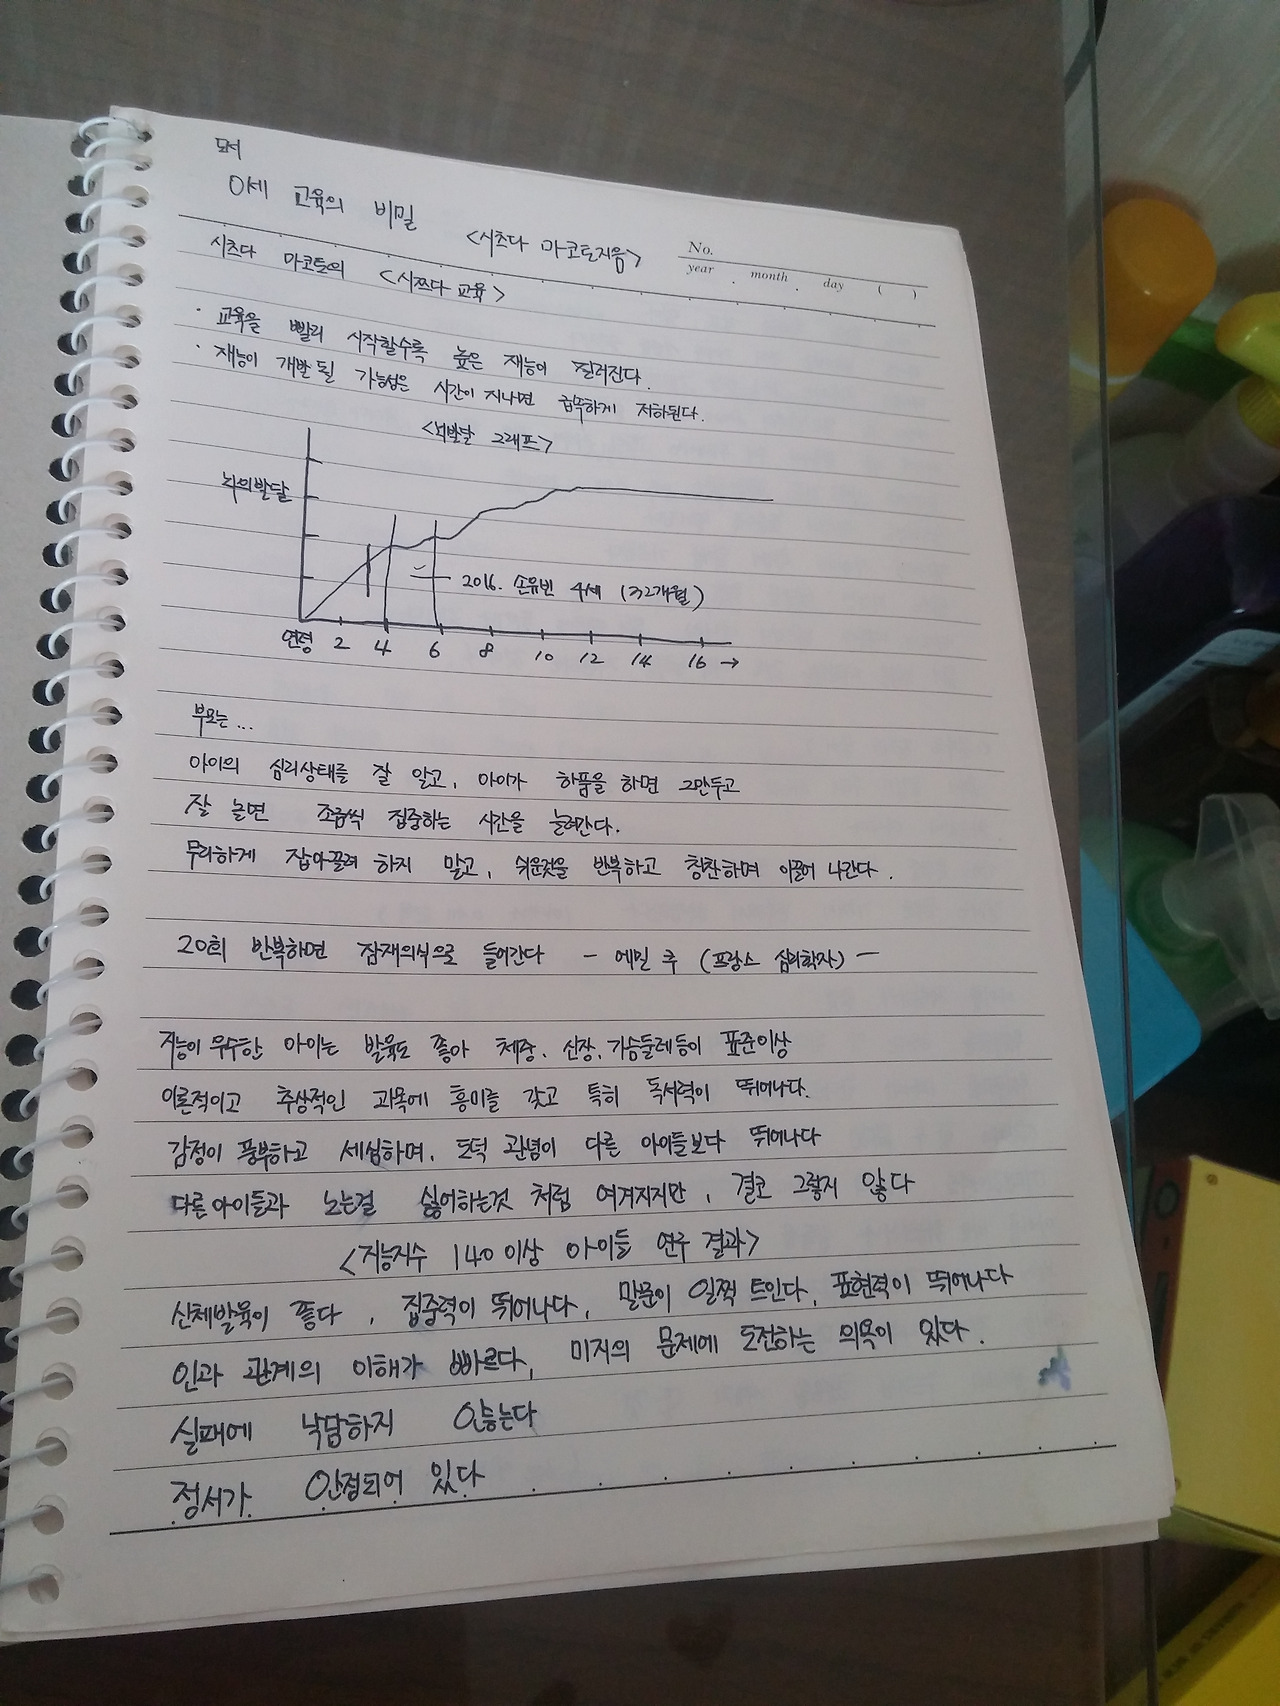 도서
0세 교육의 비밀 <시츠다 마코토지음>
No.
year . month . day ( )
시츠다 마코토의 <시쯔다 교육>
· 교육을 빨리 시작할수록 높은 재능이 길러진다.
· 재능이 개발될 가능성은 시간이 지나면 급속하게 저하된다.
<뇌발달 그래프>
뇌의발달
2016. 손유빈 4세 (32개월)
연령 2 4 6 8 10 12 14 16 →
부모는...
아이의 심리상태를 잘 알고, 아이가 하품을 하면 그만두고
잘 놀면 조금씩 집중하는 시간을 늘려간다.
무리하게 잡아끌려 하지 말고, 쉬운것을 반복하고 칭찬하며 이끌어 나간다.
20회 반복하면 잠재의식으로 들어간다 - 에밀 쿠 (프랑스 심리학자) -
지능이 우수한 아이는 발육도 좋아 체중, 신장, 가슴둘레등이 표준이상
이론적이고 추상적인 과목에 흥미를 갖고 특히 독서력이 뛰어나다.
감정이 풍부하고 세심하며, 도덕 관념이 다른 아이들보다 뛰어나다
다른아이들과 노는걸 싫어하는것 처럼 여겨지지만, 결코 그렇지 않다
<지능지수 140이상 아이들 연구 결과>
신체발육이 좋다, 집중력이 뛰어나다, 말문이 일찍 트인다, 표현력이 뛰어나다
인과 관계의 이해가 빠르다, 미지의 문제에 도전하는 의욕이 있다.
실패에 낙담하지 않는다
정서가 안정되어 있다